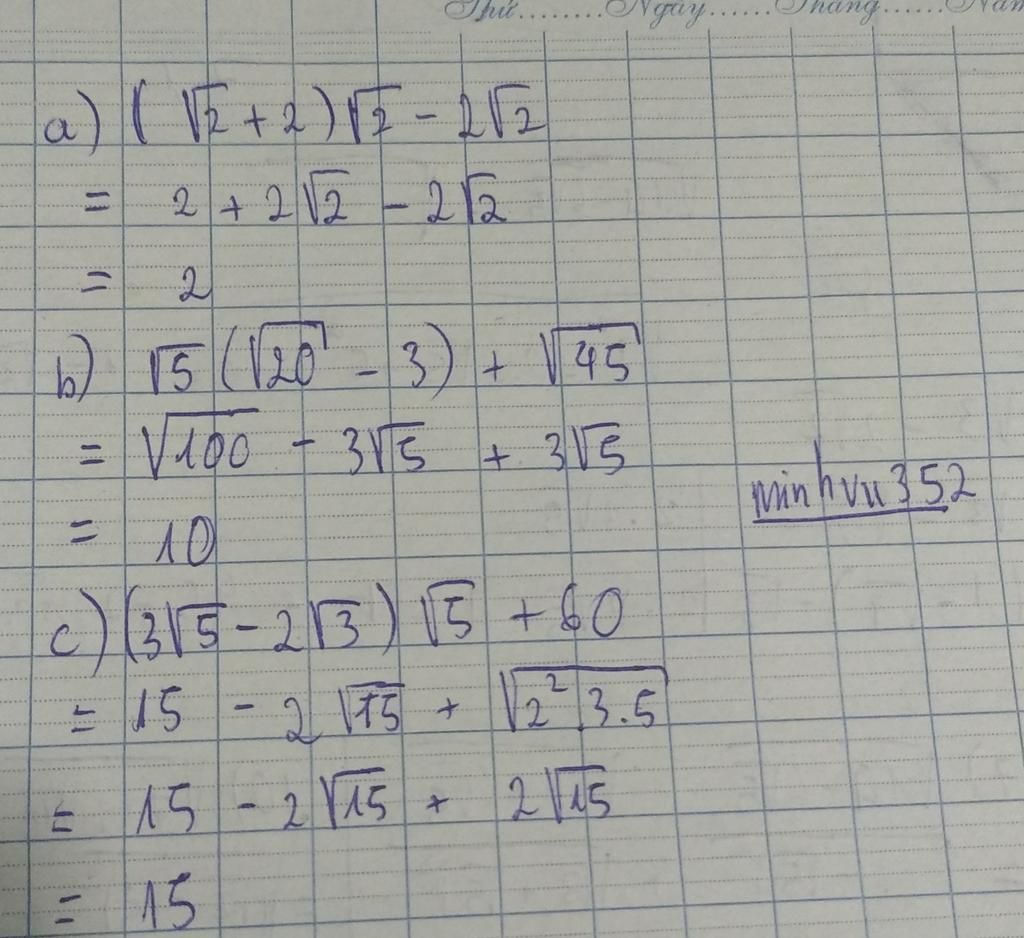 Thứ........Ngày......Tháng......Năm
a) (√2 + 2)√2 - 2√2
= 2 + 2√2 - 2√2
= 2
b) √5 (√20 - 3) + √45
= √100 - 3√5 + 3√5
= 10
minhvu352
c) (3√5 - 2√3) √5 + 60
= 15 - 2√15 + √2².3.5
= 15 - 2√15 + 2√15
= 15